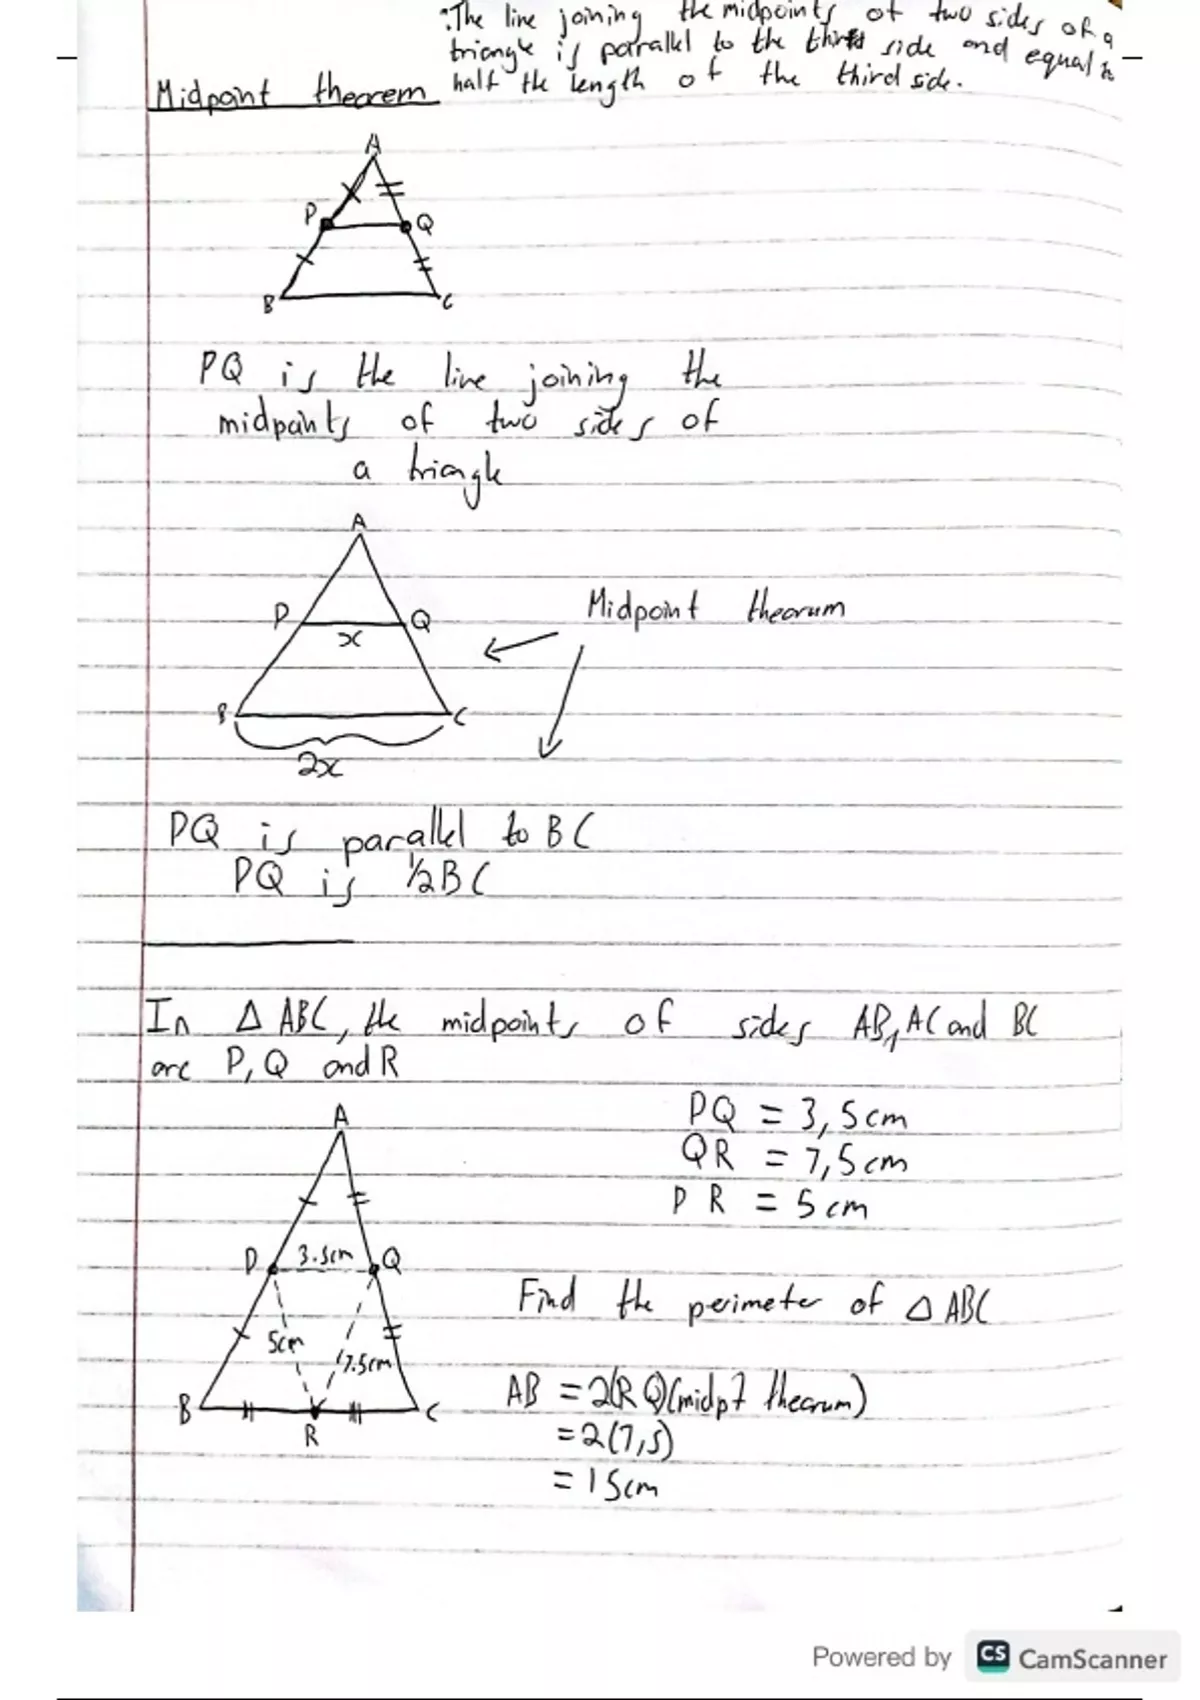 :The line joining the midpoints of two sides of a
triangle is parallel to the third side and equal to
Midpoint theorem half the length of the third side.
A
P Q
B C
PQ is the line joining the
midpoints of two sides of
a triangle
A
P Q Midpoint theorum
x
B C
2x
PQ is parallel to BC
PQ is 1/2BC
In △ ABC, the midpoints of sides AB, AC and BC
are P, Q and R
A PQ = 3,5cm
QR = 7,5cm
PR = 5cm
P 3.5cm Q
Find the perimeter of △ ABC
5cm 7.5cm
B R C
AB = 2(RQ)(midpt thearum)
= 2(7,5)
= 15cm
Powered by CS CamScanner